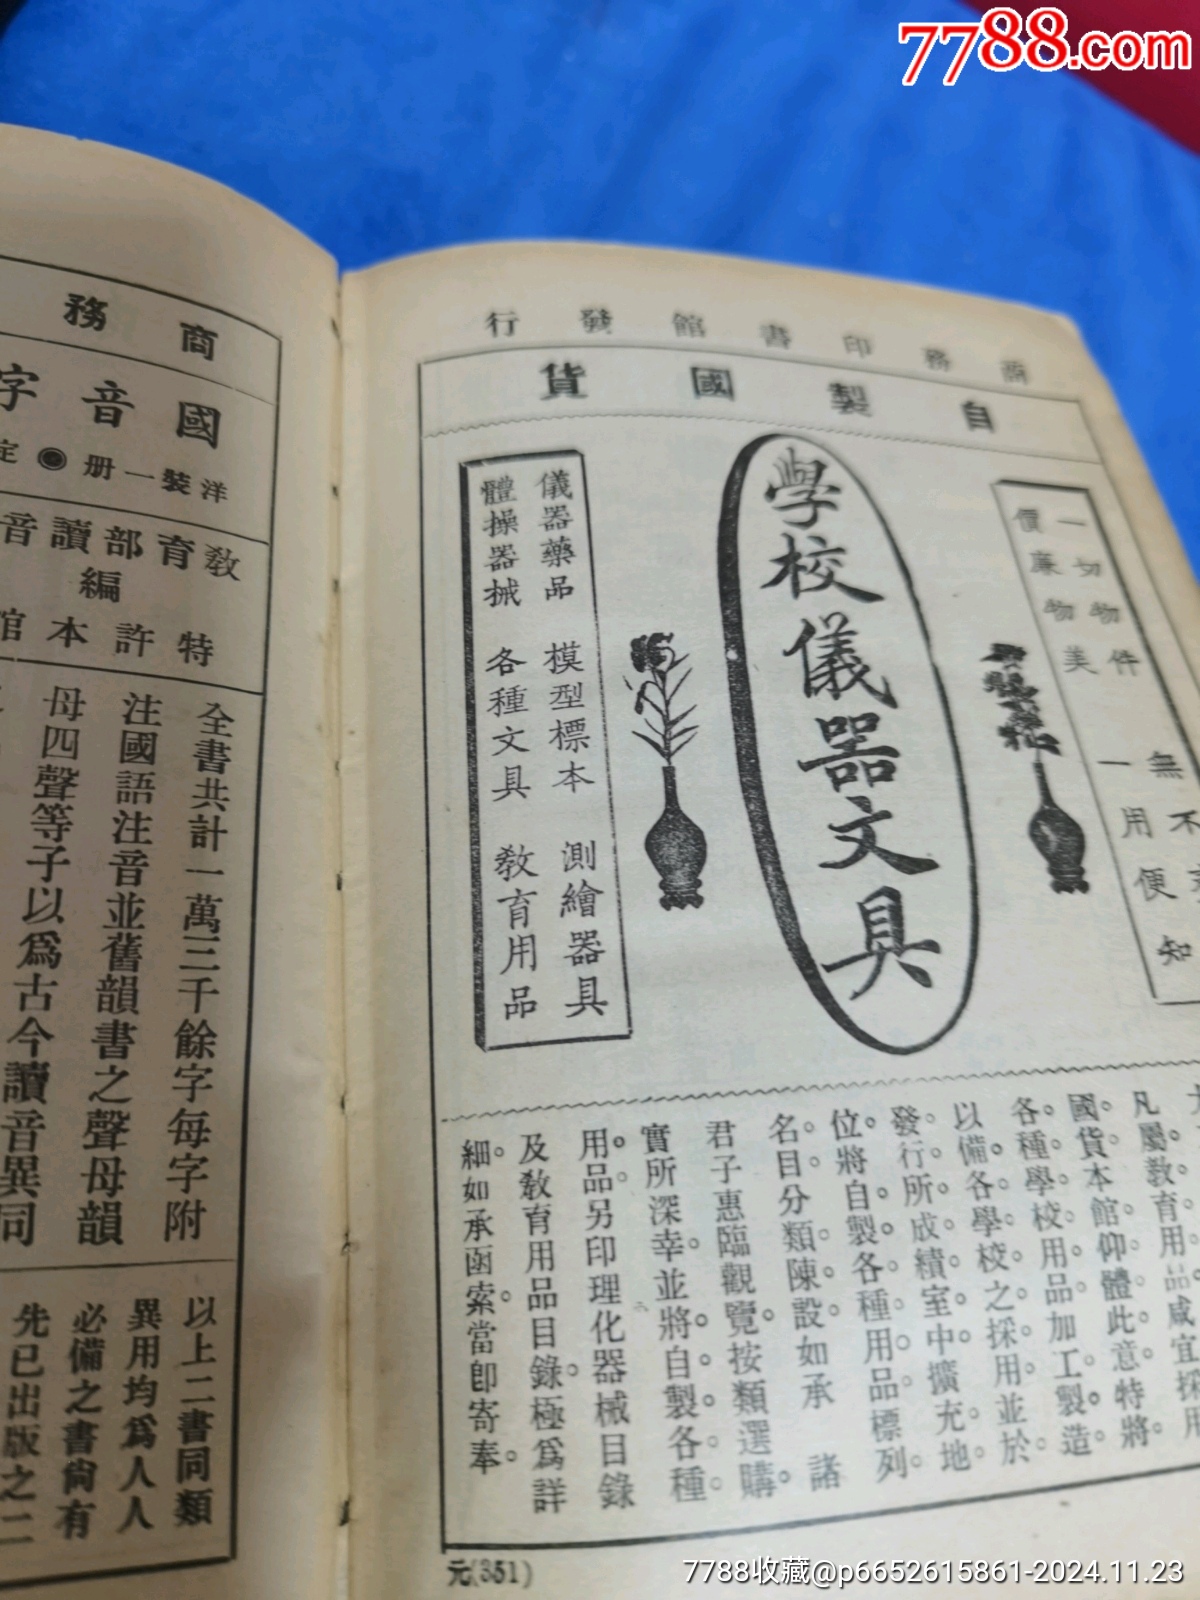 7788.com
商務印書館發行
自製國貨
一切物件
無不
價廉物美
一用便知
學校儀器文具
儀器藥品 模型標本 測繪器具
體操器械 各種文具 敎育用品
凡屬敎育用品咸宜採用
國貨。本館仰體此意。特將
各種學校用品加工製造。
以備各學校之採用並於
發行所成績室中。擴充地
位。將自製各種用品。標列
名目。分類陳設如承 諸
君子惠臨觀覽。按類選購。
實所深幸並將自製各種
用品。另印理化器械目錄
及敎育用品目錄。極爲詳
細。如承函索。當卽寄奉。
元(351)
商務
國音字
洋裝一册 定
敎育部讀音
編
特許本館
全書共計一萬三千餘字每字附
注國語注音並舊韻書之聲母韻
母四聲等子以爲古今讀音異同
以上二書同類
異用均爲人人
必備之書尙有
先已出版之二
7788收藏@p6652615861-2024.11.23